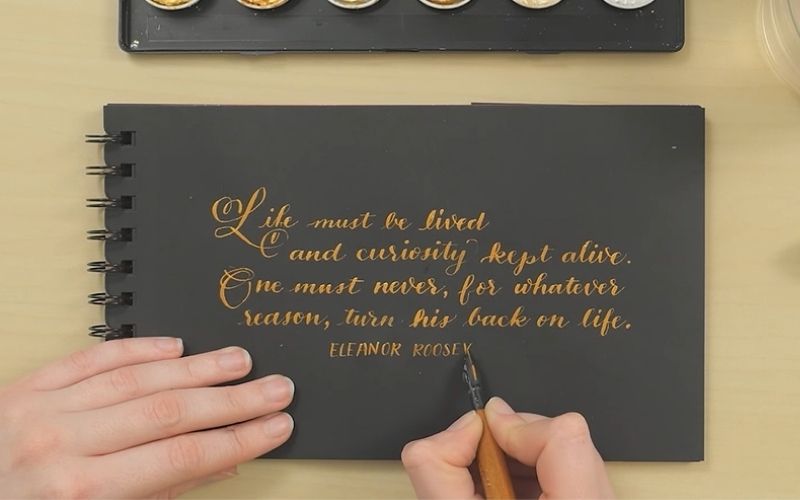 Life must be lived
and curiosity kept alive.
One must never, for whatever
reason, turn his back on life.
ELEANOR ROOSEV